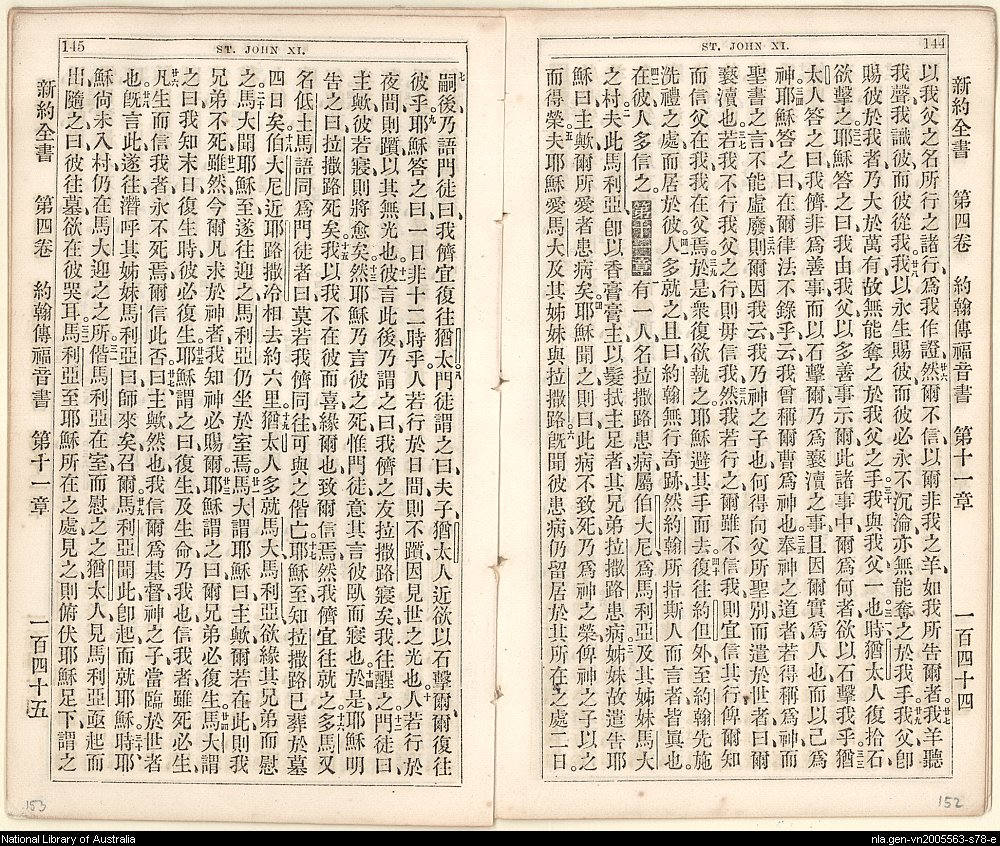 144
ST. JOHN XI.
新約全書 第四卷 約翰傳福音書 第十一章 一百四十四
以我父之名所行之諸行、爲我作證、然爾不信、以爾非我之羊、如我所告爾者、我羊聽
我聲、我識彼、而彼從我、我以永生賜彼、而彼必永不沉淪、亦無能奪之於我手、我父卽
賜彼於我者、乃大於萬有、故無能奪之於我父之手、我與我父一也、時猶太人復拾石
欲擊之、耶穌答之曰、我由我父以多善事示爾、此諸事中、爾爲何者欲以石擊我乎、猶
太人答之曰、我儕非爲善事、而以石擊爾、乃爲褻瀆之事、且因爾實爲人也、而以己爲
神、耶穌答之曰、在爾律法不錄乎、云我曾稱爾曹爲神也、奉神之道者、若得稱爲神、而
聖書之言不能虛廢、則爾因我云我乃神之子也、何得向父所聖別而遣於世者曰、爾
褻瀆也、若我不行我父之行、則毋信我、然我若行之、爾雖不信我、則宜信其行、俾爾知
而信父在我、我在父焉、於是衆復欲執之、耶穌避其手而去、復往約但外、至約翰先施
洗禮之處而居、於彼人多就之、且曰、約翰無行奇跡、然約翰所指斯人而言者、皆眞也、
在彼人多信之。第十一章 有一人名拉撒路患病、屬伯大尼、爲馬利亞及其姊妹馬大
之村、夫此馬利亞、卽以香膏膏主、以髮拭主足者、其兄弟拉撒路患病、姊妹故遣告耶
穌曰、主歟、爾所愛者患病矣、耶穌聞之則曰、此病不致死、乃爲神之榮、俾神之子以之
而得榮、夫耶穌愛馬大及其姊妹與拉撒路、旣聞彼患病、仍留居於其所在之處二日。
152
145
ST. JOHN XI.
嗣後乃語門徒曰、我儕宜復往猶太、門徒謂之曰、夫子、猶太人近欲以石擊爾、爾復往
彼乎、耶穌答之曰、一日非十二時乎、人若行於日間則不躓、因見世之光也、人若行於
夜間則躓、以其無光也、彼言此後、乃謂之曰、我儕之友拉撒路寢矣、我往醒之、門徒曰、
主歟、彼若寢則將愈矣、然耶穌乃言彼之死、惟門徒意其言彼臥而寢也、於是耶穌明
告之曰、拉撒路死矣、我以我不在彼而喜、緣爾也、致爾信焉、然我儕宜往就之、多馬又
名低土馬、語同爲門徒者曰、莫若我儕同往、可與之偕亡、耶穌至、知拉撒路已葬於墓
四日矣、伯大尼近耶路撒冷、相去約六里、猶太人多就馬大馬利亞、欲緣其兄弟而慰
之、馬大聞耶穌至、遂往迎之、馬利亞仍坐於室焉、馬大謂耶穌曰、主歟、爾若在此、則我
兄弟不死、雖然今爾凡求於神者、我知神必賜爾、耶穌謂之曰、爾兄弟必復生、馬大謂
之曰、我知末日復生時、彼必復生、耶穌謂之曰、復生及生命乃我也、信我者雖死必生、
凡生而信我者、永不死焉、爾信此否、曰、主歟、然也、我信爾爲基督神之子、當臨於世者
也、旣言此、遂往潛呼其姊妹馬利亞曰、師來矣、召爾、馬利亞聞此、卽起而就耶穌、時耶
穌尚未入村、仍在馬大迎之之所、偕馬利亞在室而慰之之猶太人、見馬利亞亟起而
出、隨之曰、彼往墓、欲在彼哭耳、馬利亞至耶穌所在之處、見之則俯伏耶穌足下、謂之
新約全書 第四卷 約翰傳福音書 第十一章 一百四十五
153
National Library of Australia
nla.gen-vn2005563-s78-e